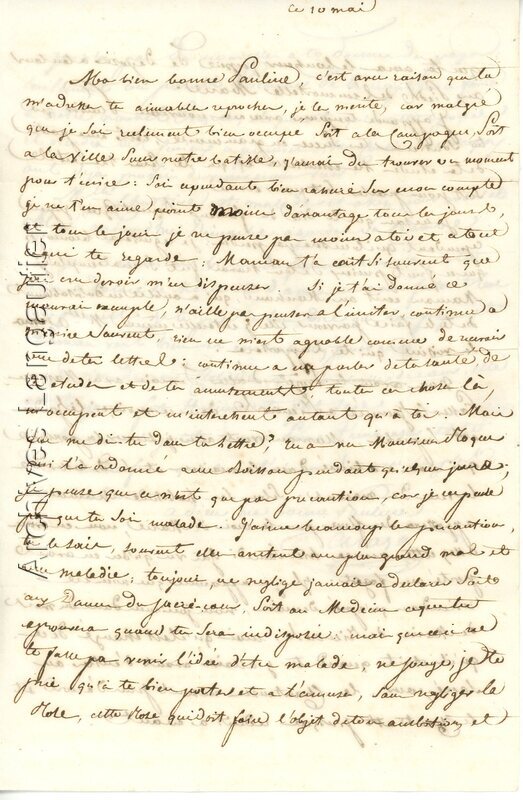 ce 10 mai
Ma bien bonne Pauline, c'est avec raison que tu
m'adresse te aimable reprocher, je le merite, car malgré
que je soi reelement bien occupé soit a la Campagne, soit
a la ville pour notre batisse, j'auroi du trouver un moment
pour t'ecrire : soi cependant bien rassuré sur mon compte
je ne t'en aime point moins davantage tous les jours,
et tous le jour je ne pense pas moins a toi et a tout
ce qui te regarde : Maman t'a ecrit si souvent que
j'ai cru devoir m'en dispenser. Si je t'ai donné ce
mauvai exemple, n'aille pas penser a l'imiter, continue a
m'ecrire souvent, rien ne m'est agreable comme de recevoir
une de tes lettres : continue a me parler de ta santé de
te etudes et de te amusements : toute ces chose là,
m'occupent et m'interessent autant qu'à toi. Mais
que me dis-tu dans ta lettre? tu a vu Monsieur Roque
qui t'a ordonné une Boisson pendant quelque jours,
je pense que ce n'est que par precaution, car je ne
que tu soi malade. J'aime beaucoup le precaution,
tu le sais, souvent elle arretent un plus grand mal et
une maladie : toujour, ne neglige jamais a declarer soit
aux Dames du sacré-coeur, soit au Medecin ce que tu
eprouvera quand tu sera indisposée : mai que ceci ne
te fasse pas venir l'idée d'etre malade, ne songe, je te
prie qu'à te bien porter et a t'amuser, sans negliger la
Rose, cette Rose qui doit faire l'objet de ton ambition, et
Archives Largaullier